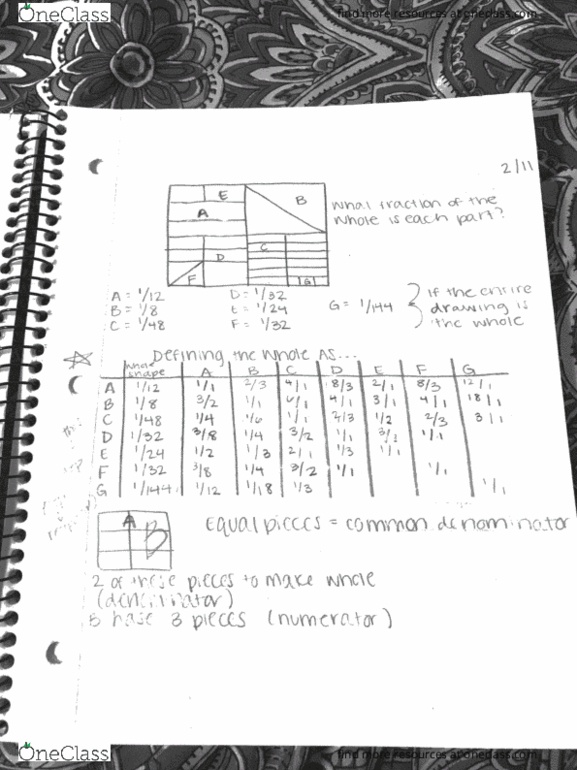 OneClass
find more resources at oneclass.com
2/11
E
B
A
D
C
F
G
What fraction of the
whole is each part?
A = 1/12 D = 1/32
B = 1/8 E = 1/24
C = 1/48 F = 1/32
G = 1/144
If the entire
drawing is
the whole
Defining the whole AS...
whole shape A B C D E F G
A 1/12 1/1 2/3 4/1 8/3 2/1 8/3 12/1
B 1/8 3/2 1/1 6/1 4/1 3/1 4/1 18/1
C 1/48 1/4 1/6 1/1 2/3 1/2 2/3 3/1
D 1/32 3/8 1/4 3/2 1/1 1/1
E 1/24 1/2 1/3 2/1 1/3 1/1
F 1/32 3/8 1/4 3/2 1/1 1/1
G 1/144 1/12 1/18 1/3 1/1
A B
Equal pieces = common denominator
2 of these pieces to make whole
(denominator)
3 pieces (numerator)
OneClass
find more resources at oneclass.com